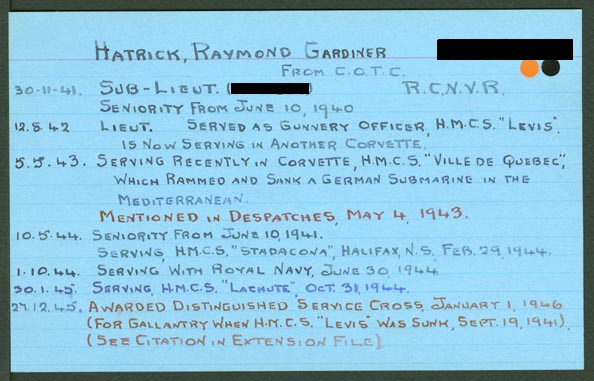 HATRICK, RAYMOND GARDINER
FROM C.O.T.C.
30-11-41. SUB-LIEUT. ( ) R.C.N.V.R.
SENIORITY FROM JUNE 10, 1940
12.8.42 LIEUT. SERVED AS GUNNERY OFFICER, H.M.C.S. "LEVIS".
IS NOW SERVING IN ANOTHER CORVETTE.
5.5.43. SERVING RECENTLY IN CORVETTE, H.M.C.S. "VILLE DE QUEBEC",
WHICH RAMMED AND SANK A GERMAN SUBMARINE IN THE
MEDITERRANEAN.
MENTIONED IN DESPATCHES, MAY 4, 1943.
10.5.44. SENIORITY FROM JUNE 10, 1941.
SERVING, H.M.C.S. "STADACONA", HALIFAX, N.S. FEB. 29, 1944.
1.10.44. SERVING WITH ROYAL NAVY, JUNE 30, 1944
30.1.45. SERVING, H.M.C.S. "LACHUTE", OCT. 31, 1944.
27.12.45. AWARDED DISTINGUISHED SERVICE CROSS, JANUARY 1, 1946
(FOR GALLANTRY WHEN H.M.C.S. "LEVIS" WAS SUNK, SEPT. 19, 1941).
(SEE CITATION IN EXTENSION FILE).